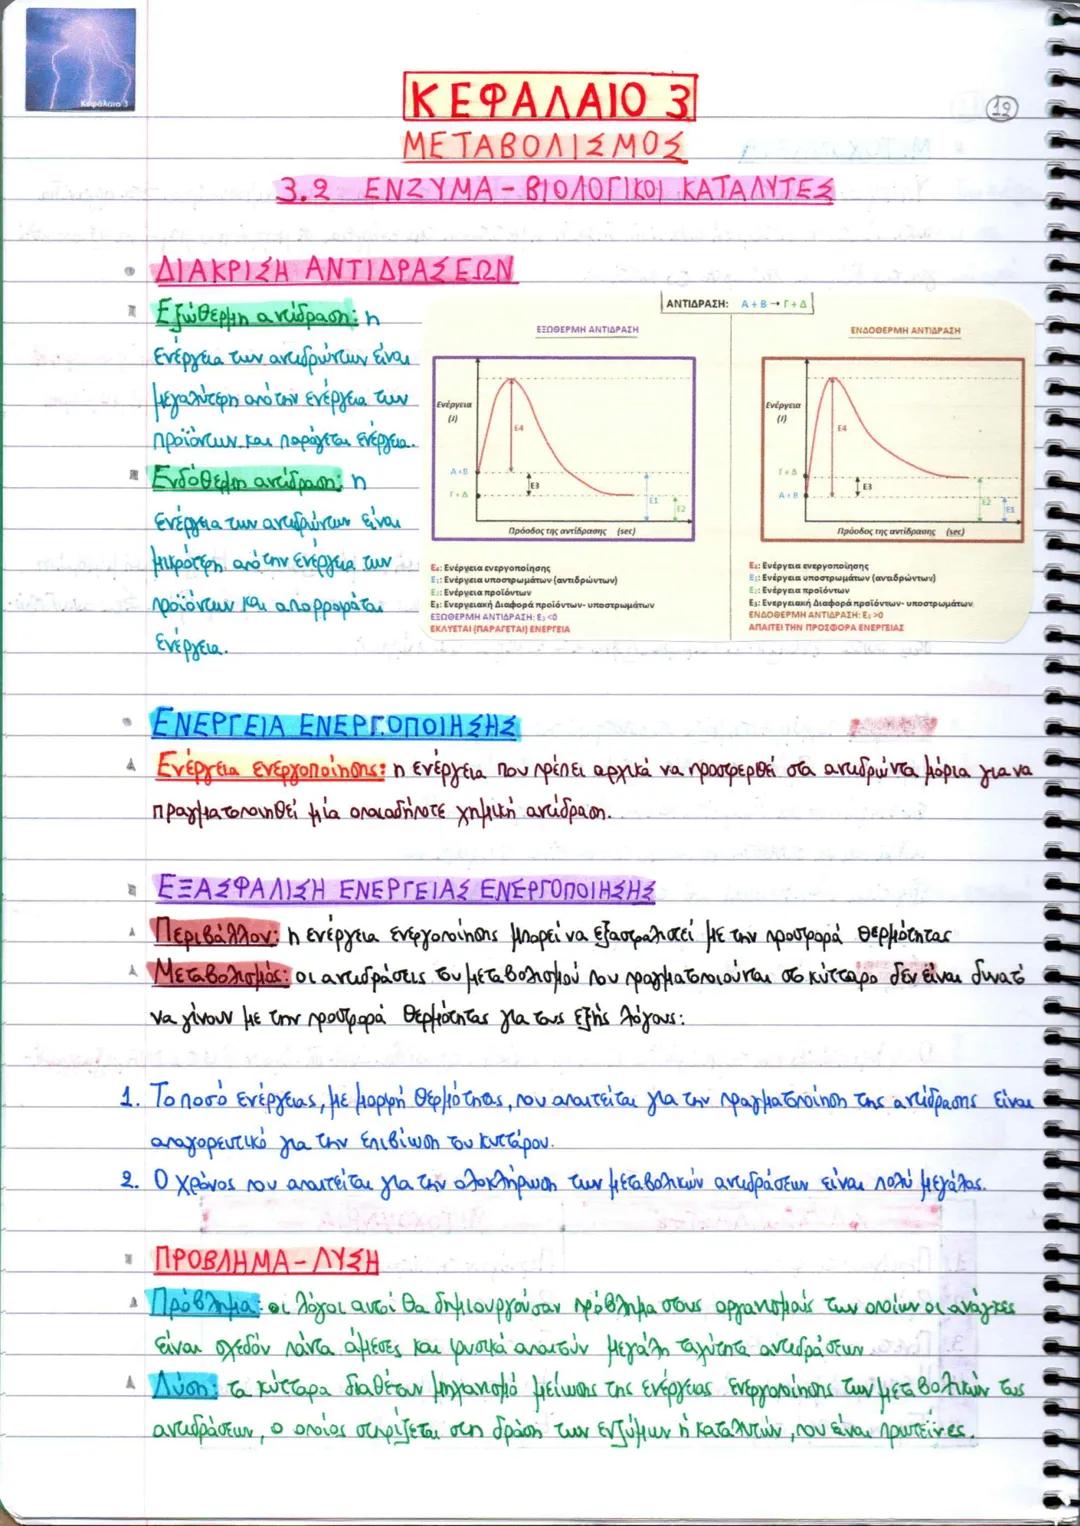 Κεφάλαιο 3
ΚΕΦΑΛΑΙΟ 3
12
ΜΕΤΑΒΟΛΙΣΜΟΣ
3.2 ΕΝΖΥΜΑ - ΒΙΟΛΟΓΙΚΟΙ ΚΑΤΑΛΥΤΕΣ
ΔΙΑΚΡΙΣΗ ΑΝΤΙΔΡΑΣΕΩΝ
Εξώθερμη αντίδραση: η
ενέργεια των αντιδρώντων είναι
μεγαλύτερη από την ενέργεια των
προϊόντων και παράγεται ενέργεια.
Ενδόθερμη αντίδραση: η
ενέργεια των αντιδρώντων είναι
μικρότερη από την ενέργεια των
προϊόντων και απορροφάται
ενέργεια.
ΑΝΤΙΔΡΑΣΗ: Α + Β → Γ + Δ
ΕΞΩΘΕΡΜΗ ΑΝΤΙΔΡΑΣΗ
Ενέργεια
(J)
E4
Α+Β
E3
Γ+Δ
E1
E2
Πρόοδος της αντίδρασης (sec)
E₄: Ενέργεια ενεργοποίησης
E₁: Ενέργεια υποστρωμάτων (αντιδρώντων)
E₂: Ενέργεια προϊόντων
E₃: Ενεργειακή Διαφορά προϊόντων- υποστρωμάτων
ΕΞΩΘΕΡΜΗ ΑΝΤΙΔΡΑΣΗ: E₃ <0
ΕΚΛΥΕΤΑΙ (ΠΑΡΑΓΕΤΑΙ) ΕΝΕΡΓΕΙΑ
ΕΝΔΟΘΕΡΜΗ ΑΝΤΙΔΡΑΣΗ
Ενέργεια
(J)
E4
Γ+Δ
E3
Α+Β
E2
E1
Πρόοδος της αντίδρασης (sec)
E₄: Ενέργεια ενεργοποίησης
E₁: Ενέργεια υποστρωμάτων (αντιδρώντων)
E₂: Ενέργεια προϊόντων
E₃: Ενεργειακή Διαφορά προϊόντων- υποστρωμάτων
ΕΝΔΟΘΕΡΜΗ ΑΝΤΙΔΡΑΣΗ: E₃ >0
ΑΠΑΙΤΕΙ ΤΗΝ ΠΡΟΣΦΟΡΑ ΕΝΕΡΓΕΙΑΣ
ΕΝΕΡΓΕΙΑ ΕΝΕΡΓΟΠΟΙΗΣΗΣ
Ενέργεια ενεργοποίησης: η ενέργεια που πρέπει αρχικά να προσφερθεί στα αντιδρώντα μόρια για να
πραγματοποιηθεί μία οποιαδήποτε χημική αντίδραση.
ΕΞΑΣΦΑΛΙΣΗ ΕΝΕΡΓΕΙΑΣ ΕΝΕΡΓΟΠΟΙΗΣΗΣ
Περιβάλλον: η ενέργεια ενεργοποίησης μπορεί να εξασφαλιστεί με την προσφορά θερμότητας
Μεταβολισμός: οι αντιδράσεις του μεταβολισμού που πραγματοποιούνται στο κύτταρο δεν είναι δυνατό
να γίνουν με την προσφορά θερμότητας για τους εξής λόγους:
1. Το ποσό ενέργειας, με μορφή θερμότητας, που απαιτείται για την πραγματοποίηση της αντίδρασης είναι
απαγορευτικό για την επιβίωση του κυττάρου.
2. Ο χρόνος που απαιτείται για την ολοκλήρωση των μεταβολικών αντιδράσεων είναι πολύ μεγάλος.
ΠΡΟΒΛΗΜΑ - ΛΥΣΗ
Πρόβλημα: οι λόγοι αυτοί θα δημιουργούσαν πρόβλημα στους οργανισμούς των οποίων οι ανάγκες
είναι σχεδόν πάντα άμεσες και φυσικά απαιτούν μεγάλη ταχύτητα αντιδράσεων.
Λύση: τα κύτταρα διαθέτουν μηχανισμό μείωσης της ενέργειας ενεργοποίησης των μεταβολικών τους
αντιδράσεων, ο οποίος στηρίζεται στη δράση των ενζύμων ή καταλυτών, που είναι πρωτεΐνες.